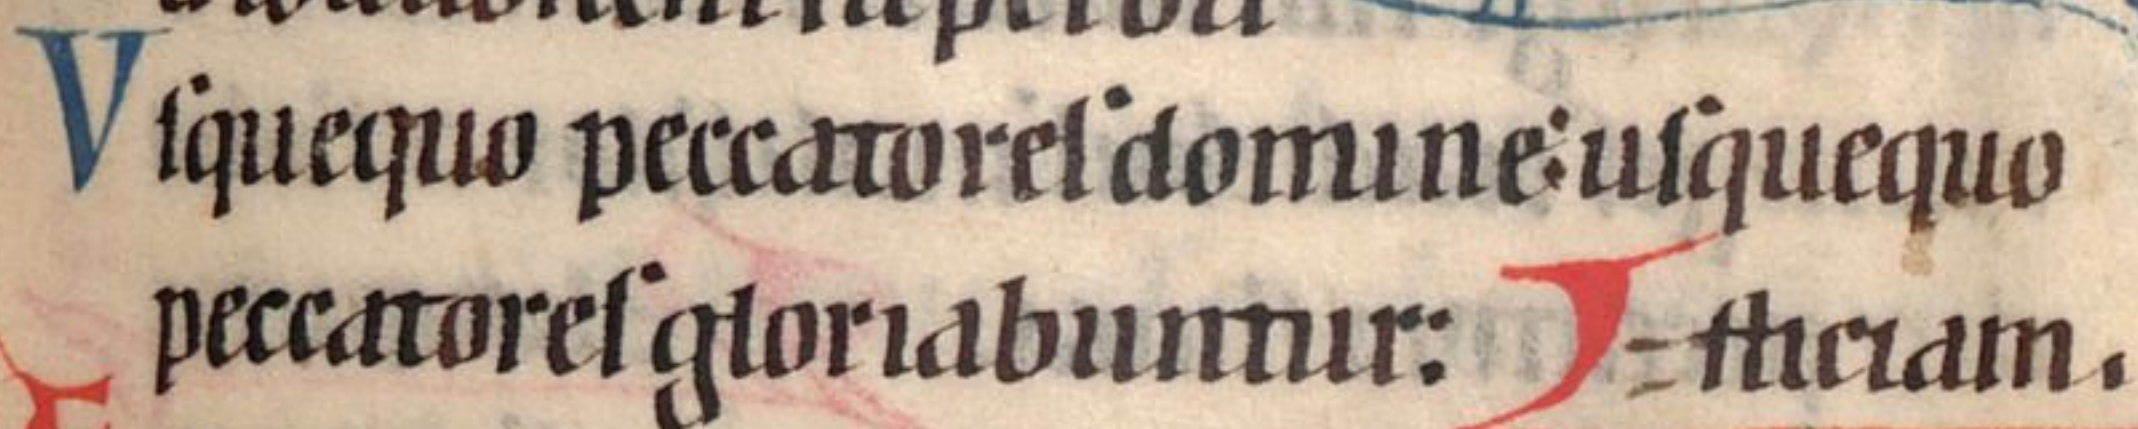 Vſquequo peccatoreſ domine: uſquequo
peccatoreſ gloriabuntur: J =ſticiam.